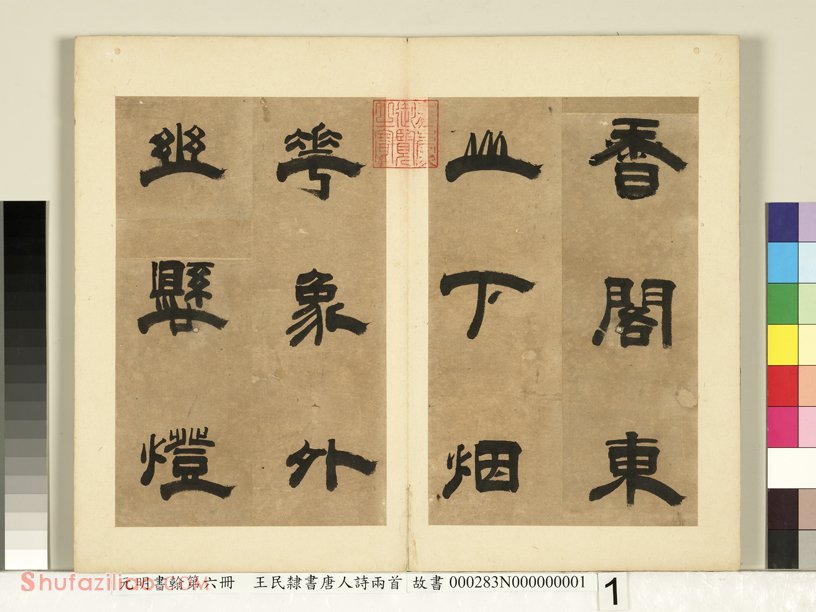 香閣東
山下烟
華象外
幽懸燈
元明書翰第六冊 王民隸書唐人詩兩首 故書 000283N000000001
1
Shufaziliao.com